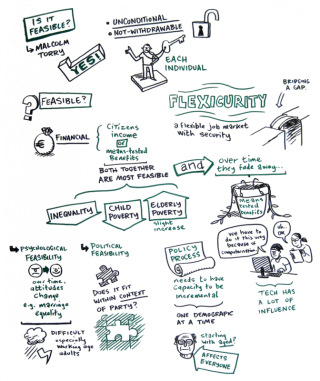 IS IT
FEASIBLE?
MALCOLM
TORRY
YES!
• UNCONDITIONAL
• NOT-WITHDRAWABLE
EACH
INDIVIDUAL
? FEASIBLE?
FINANCIAL
Citizens
income
OR
means-tested
Benefits
BOTH TOGETHER
ARE MOST FEASIBLE
FLEXICURITY
a flexible job market
with security
BRIDGING
A GAP
and
over time
they fade away...
means
tested
benefits
INEQUALITY
CHILD
POVERTY
ELDERLY
POVERTY
slight
increase
PSYCHOLOGICAL
FEASIBILITY
over time,
attitudes
change
e.g. marriage
equality
DIFFICULT
especially
working age
adults
POLITICAL
FEASIBILITY
DOES IT FIT
WITHIN CONTEXT
OF PARTY?
POLICY
PROCESS
needs to have
capacity to be
incremental
ONE DEMOGRAPHIC
AT A TIME
starting
with aged?
AFFECTS
EVERYONE!
We have to
do it this way
because of
computerisation
TECH HAS
A LOT OF
INFLUENCE